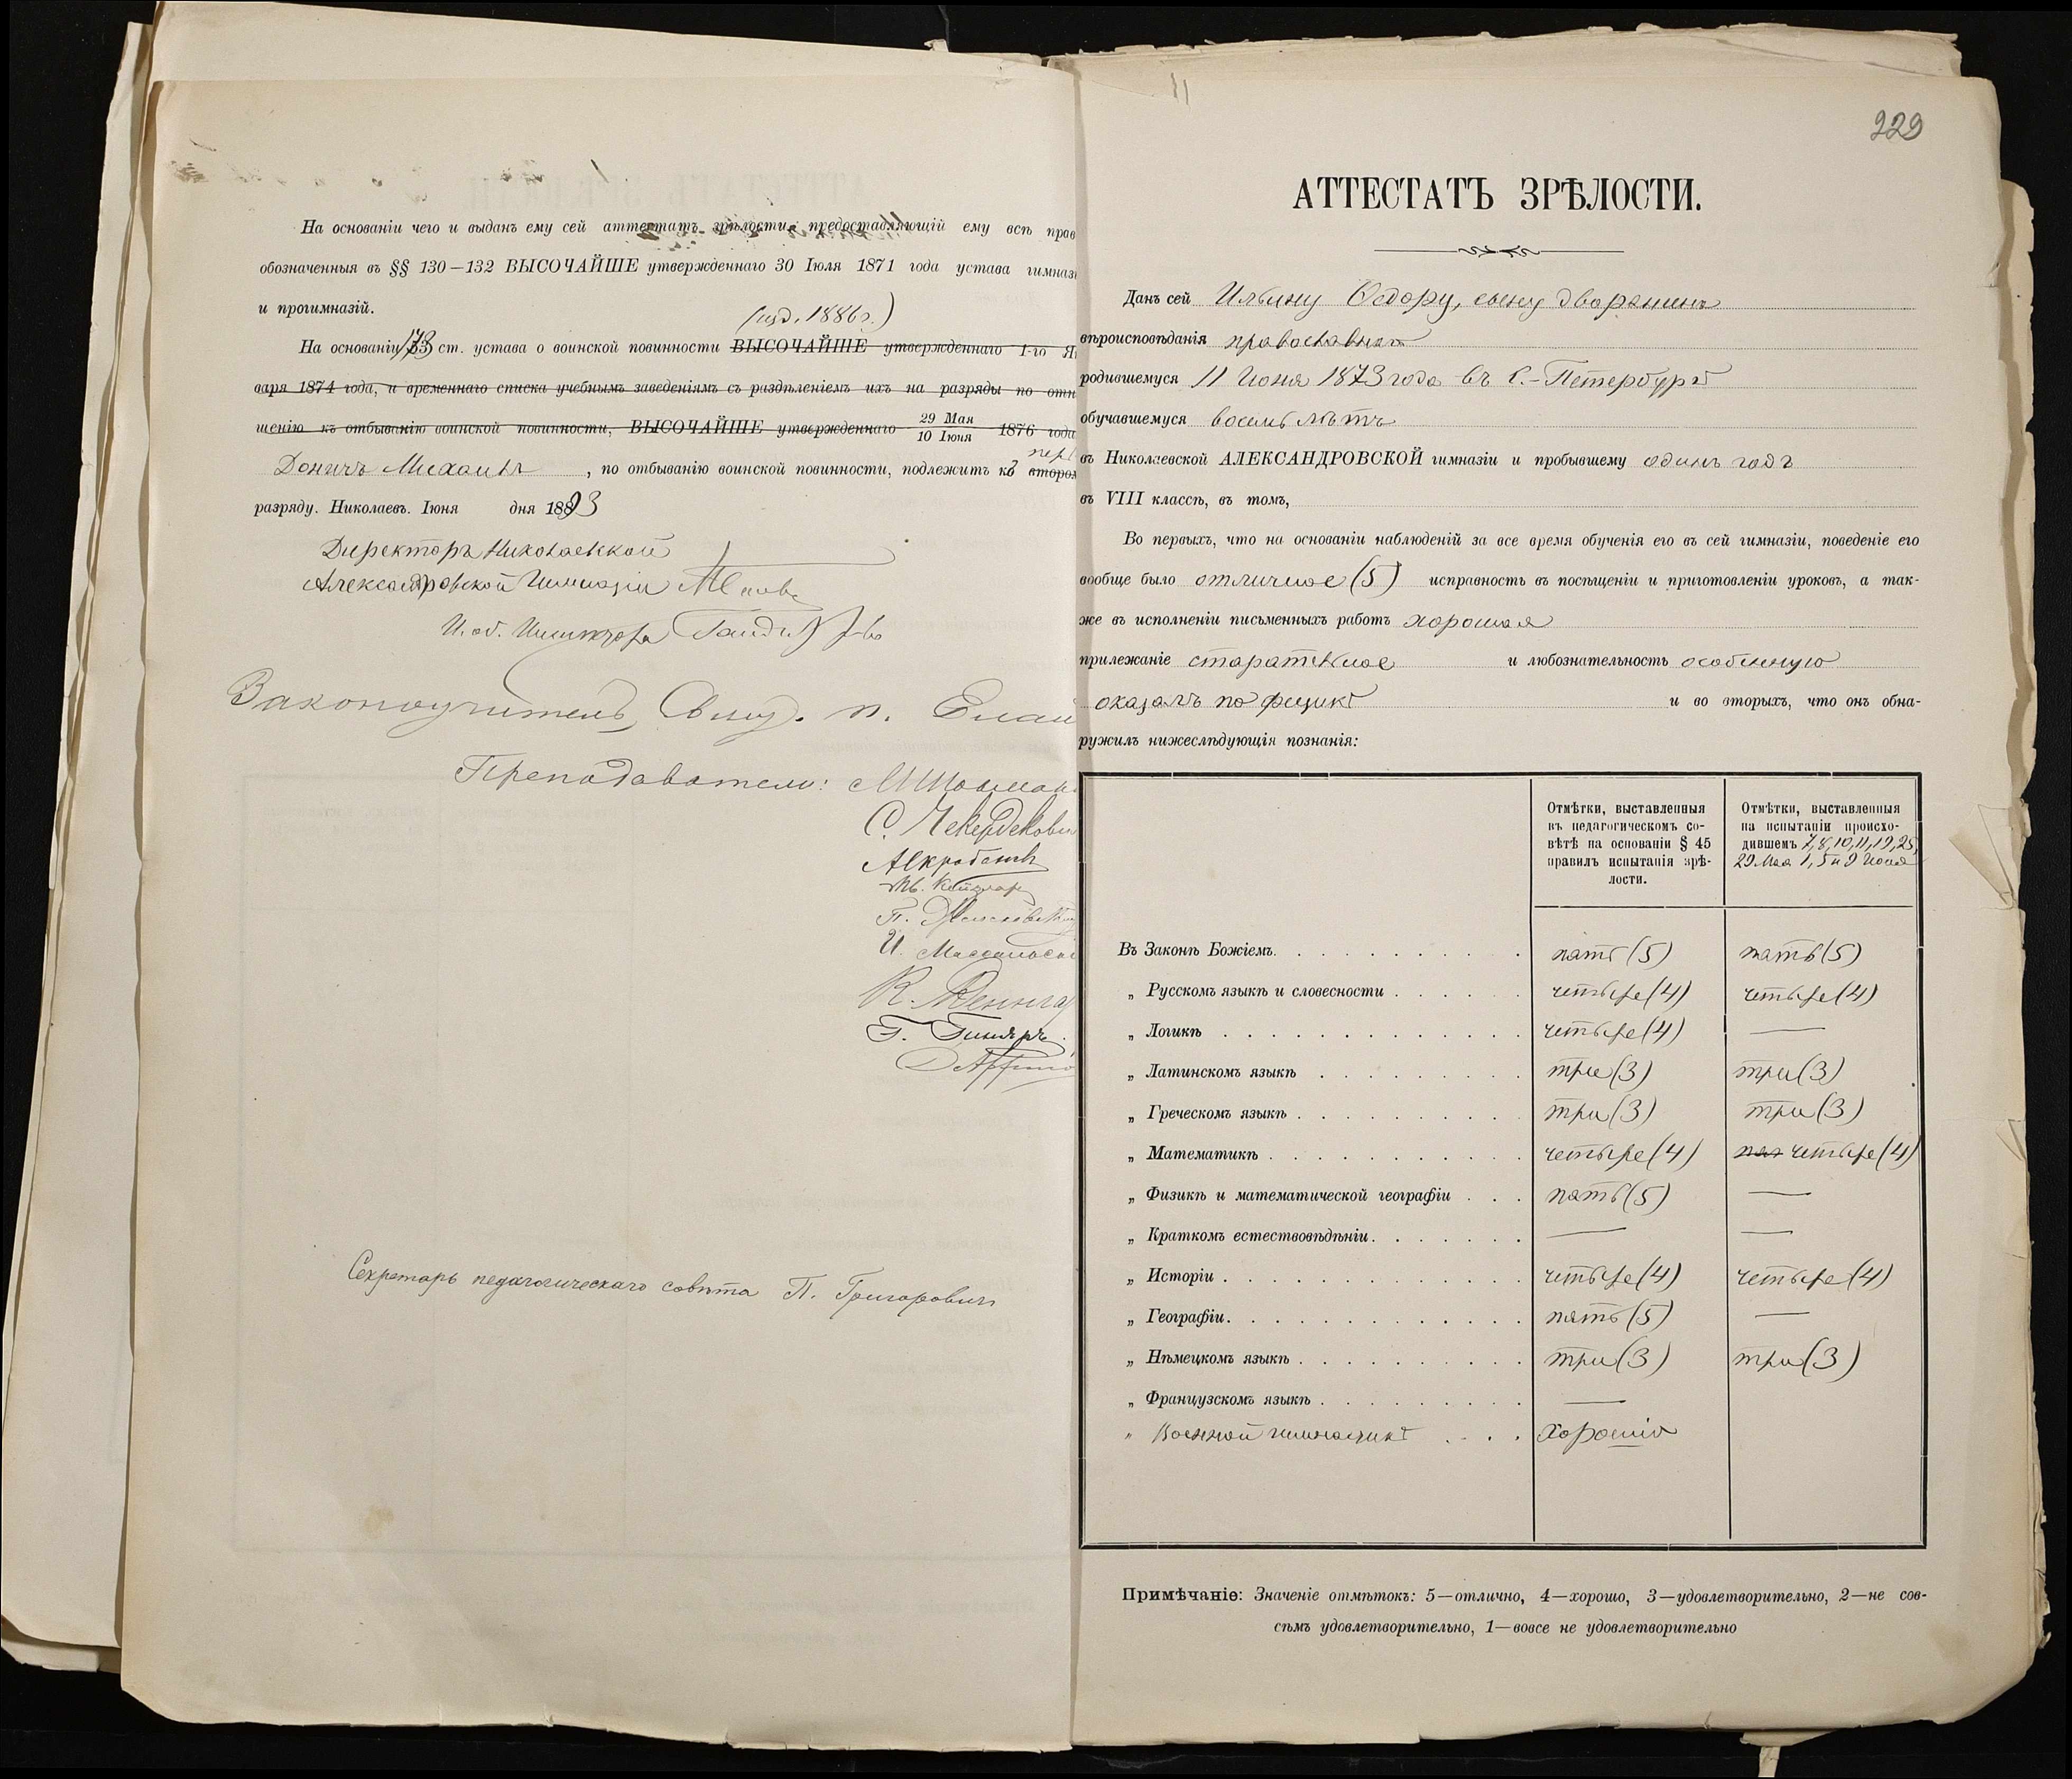 На основаніи чего и выданъ ему сей аттестатъ зрѣлости, предоставляющій ему всѣ прав
обозначенныя въ §§ 130—132 ВЫСОЧАЙШЕ утвержденнаго 30 Іюля 1871 года устава гимназі
и прогимназій.
(изд. 1886 г.)
На основаніи 173 53 ст. устава о воинской повинности ВЫСОЧАЙШЕ утвержденнаго 1-го Ян
варя 1874 года, и временнаго списка учебнымъ заведеніямъ съ раздѣленіемъ ихъ на разряды по отн
шенію къ отбыванію воинской повинности, ВЫСОЧАЙШЕ утвержденнаго 29 Мая 10 Іюня 1876 года
пер
Доничъ Михаилъ, по отбыванію воинской повинности, подлежитъ ко второ
разряду. Николаевъ. Іюня дня 1893
Директоръ Николаевской
Александровской Гимназіи
И. об. Инспектора
Законоучитель Свящ. п. Елан
Преподаватели:
С. Чекердекови
И.
К.
Г. Гиняръ
Секретарь педагогическаго совѣта П. Григоровичъ
229
АТТЕСТАТЪ ЗРѢЛОСТИ.
Данъ сей Ильину Ѳедору, сыну дворянина
вѣроисповѣданія православнаго
родившемуся 11 Іюня 1873 года въ С.-Петербургѣ
обучавшемуся восемь лѣтъ
въ Николаевской АЛЕКСАНДРОВСКОЙ гимназіи и пробывшему одинъ годъ
въ VIII классѣ, въ томъ,
Во первыхъ, что на основаніи наблюденій за все время обученія его въ сей гимназіи, поведеніе его
вообще было отличное (5) исправность въ посѣщеніи и приготовленіи уроковъ, а так-
же въ исполненіи письменныхъ работъ хорошая
прилежаніе старательное и любознательность особенную
оказалъ по физикѣ и во вторыхъ, что онъ обна-
ружилъ нижеслѣдующія познанія:
Отмѣтки, выставленныя
въ педагогическомъ со-
вѣтѣ на основаніи § 45
правилъ испытанія зрѣ-
лости.
Отмѣтки, выставленныя
на испытаніи происхо-
дившемъ 7, 8, 10, 11, 19, 25,
29 Мая 1, 5 и 9 Іюня
Въ Законѣ Божіемъ. пять (5) пять (5)
„ Русскомъ языкѣ и словесности четыре (4) четыре (4)
„ Логикѣ четыре (4) —
„ Латинскомъ языкѣ три (3) три (3)
„ Греческомъ языкѣ три (3) три (3)
„ Математикѣ четыре (4) пят четыре (4)
„ Физикѣ и математической географіи пять (5) —
„ Краткомъ естествовѣдѣніи — —
„ Исторіи четыре (4) четыре (4)
„ Географіи пять (5) —
„ Нѣмецкомъ языкѣ три (3) три (3)
„ Французскомъ языкѣ —
„ Военной гимнастикѣ хорошія
Примѣчаніе: Значеніе отмѣтокъ: 5—отлично, 4—хорошо, 3—удовлетворительно, 2—не сов-
сѣмъ удовлетворительно, 1—вовсе не удовлетворительно